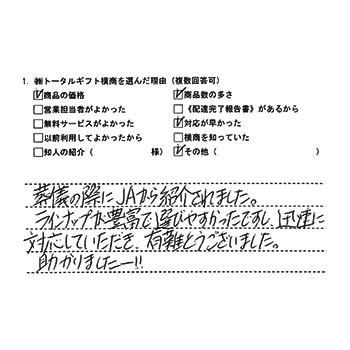 1. ㈱トータルギフト横商を選んだ理由（複数回答可）
☑商品の価格 ☑商品数の多さ
□営業担当者がよかった □《配達完了報告書》があるから
□無料サービスがよかった ☑対応が早かった
□以前利用してよかったから □横商を知っていた
□知人の紹介（ 様） ☑その他（ ）
葬儀の際にJAから紹介されました。
ラインナップが豊富で選びやすかったですし、迅速に
対応していただき、有難とうございました。
助かりましたー!!